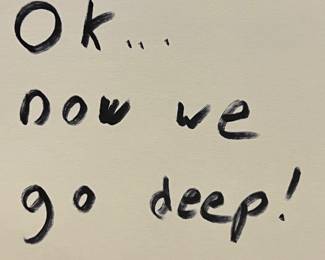 Ok...
now we
go deep!